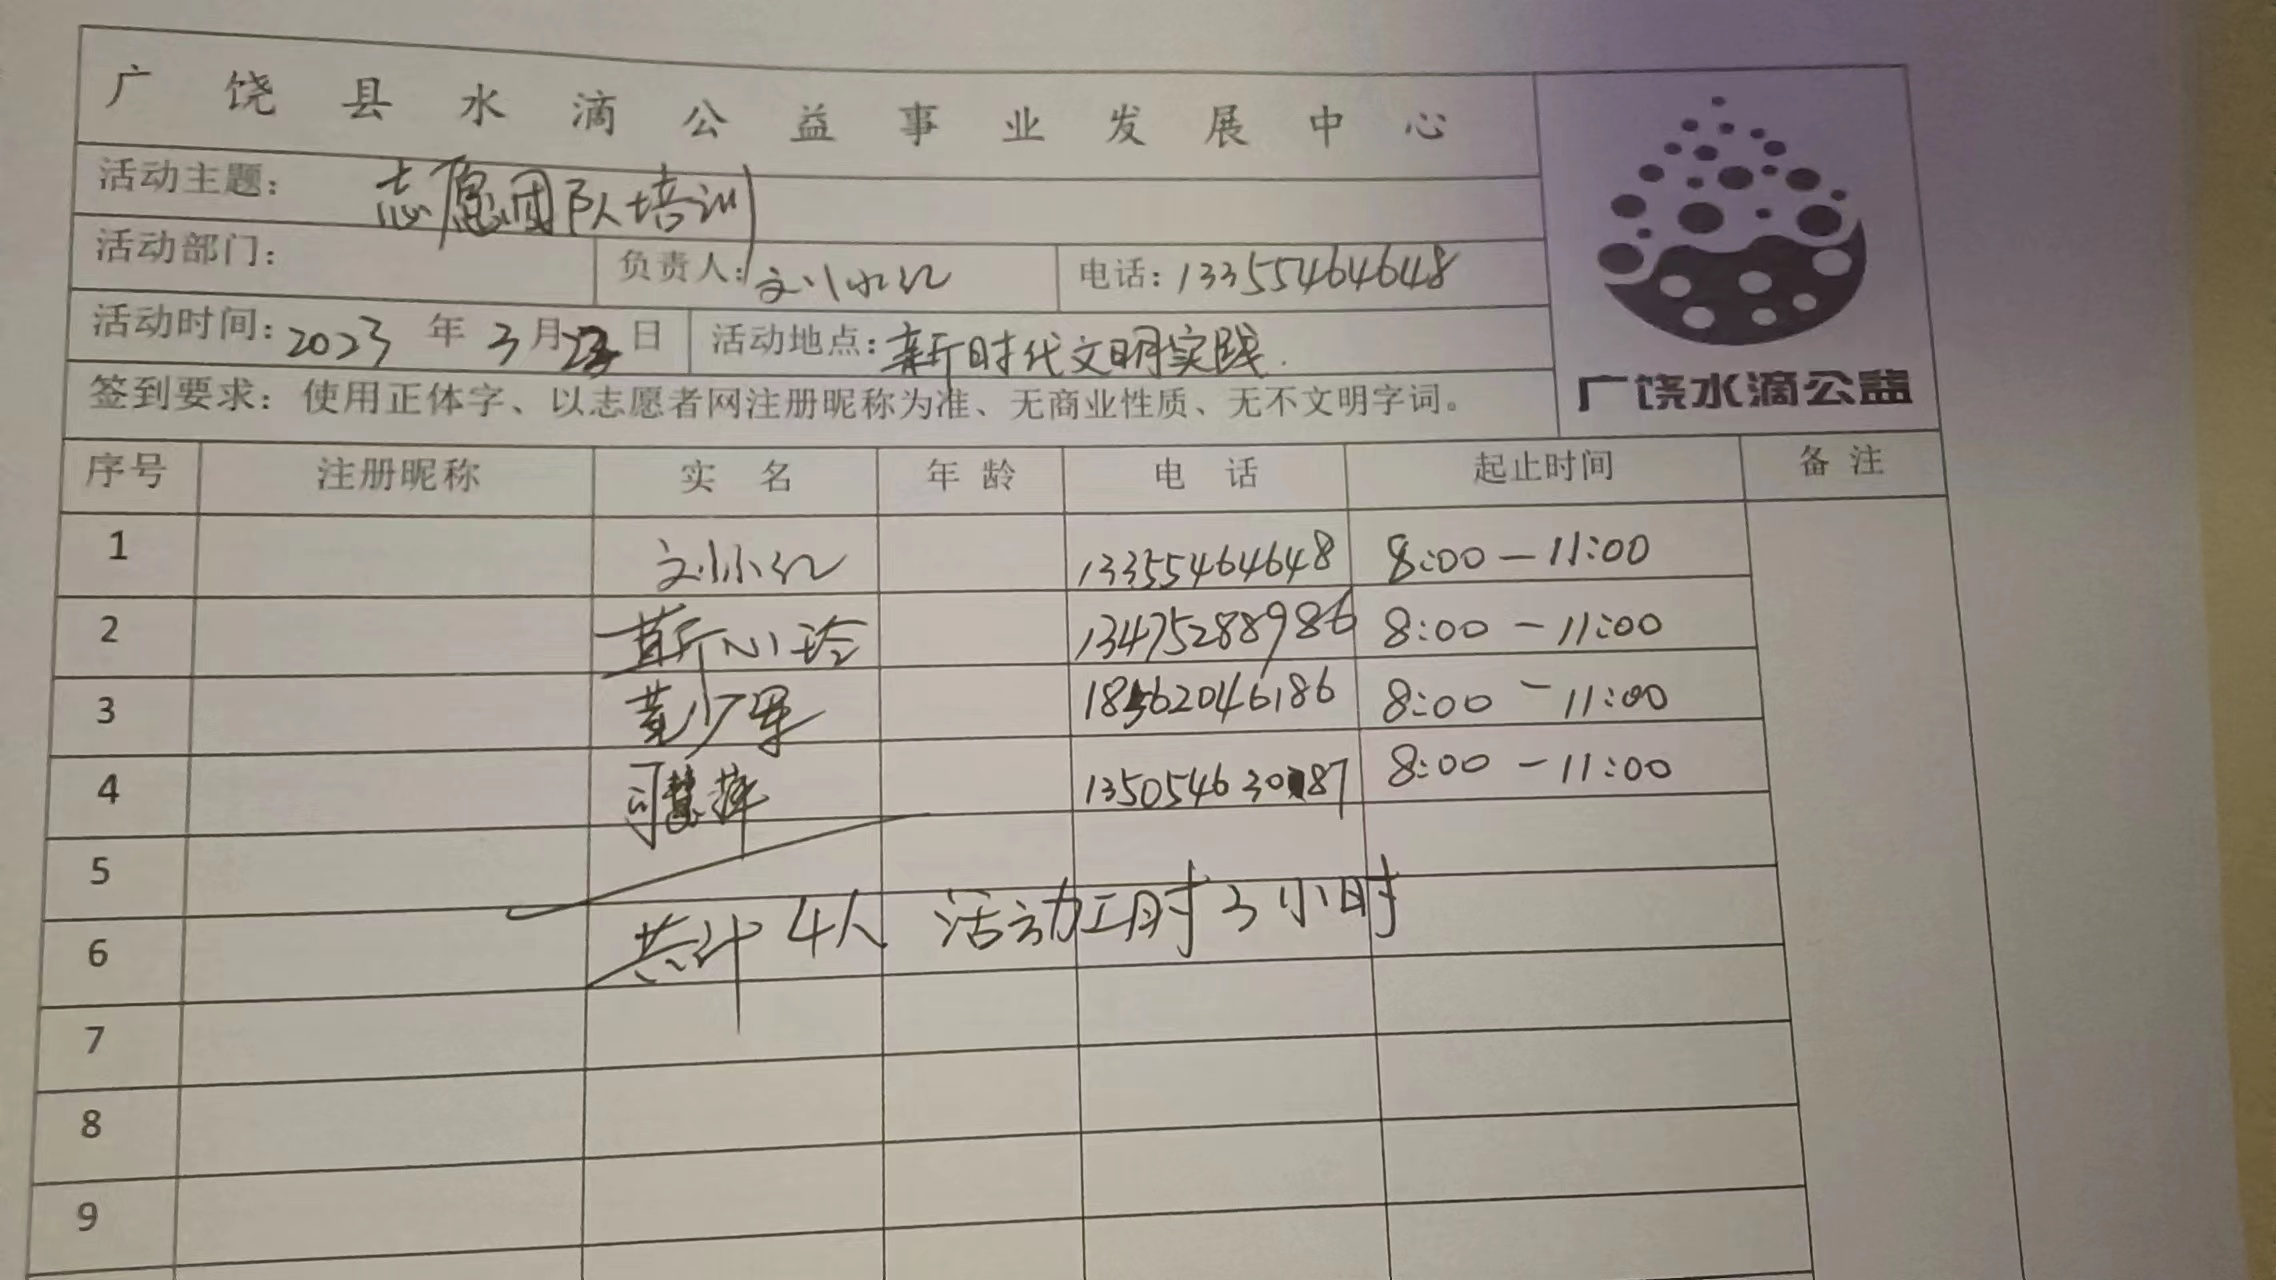 广饶县水滴公益事业发展中心
活动主题: 志愿团队培训
活动部门: 负责人: 刘小红 电话: 13355464648
活动时间: 2023 年 3 月 日 活动地点: 新时代文明实践.
签到要求: 使用正体字、以志愿者网注册昵称为准、无商业性质、无不文明字词。
广饶水滴公益
序号 注册昵称 实名 年龄 电话 起止时间 备注
1 刘小红 13355464648 8:00－11:00
2 靳小玲 13475288986 8:00－11:00
3 黄少军 18562046186 8:00－11:00
4 司慧萍 8:00－11:00
5
6 共计4人 活动工时3小时
7
8
9